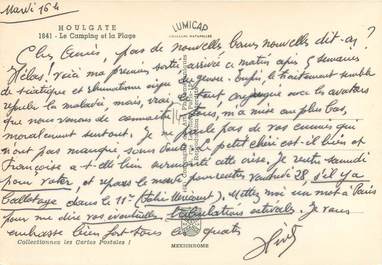 Mardi 16h
HOULGATE
1641 - Le Camping et la Plage
LUMICAP
COULEURS NATURELLES
Chers Amis, pas de nouvelles bonnes nouvelles dit-on ?
Hélas ! Voici ma première sortie arrivée ce matin après 5 semaines
de sciatique et rhumatisme aigu du genou. Enfin, le traitement semble
reculer la maladie, mais, vrai, tout ça avec les avatars
que nous venons de connaître tous, m'a mise au plus bas,
moralement surtout. Je ne parle pas de vos ennuis qui
n'ont pas manqué sans doute. Le petit chéri est-il bien et
Françoise a-t-elle bien surmonté cette crise. Je rentre samedi
pour voter, et repars le mardi pour rentrer Vendredi 28, s'il y a
ballotage dans le 11e. Mettez-moi un mot à Paris
pour me dire vos éventuelles tribulations estivales. Je vous
embrasse bien fort tous les quatre
Collectionnez les Cartes Postales !
MEXICHROME